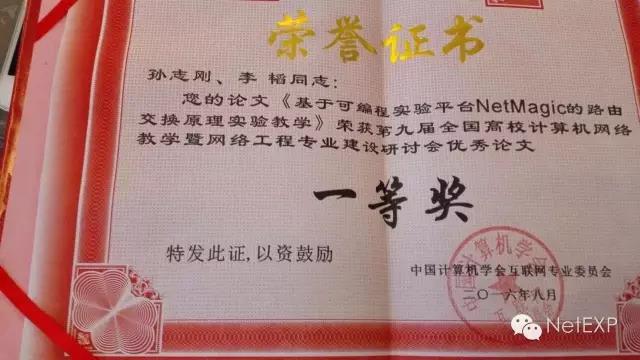 荣誉证书
孙志刚、李 韬同志：
您的论文《基于可编程实验平台NetMagic的路由
交换原理实验教学》荣获第九届全国高校计算机网络
教学暨网络工程专业建设研讨会优秀论文
一等奖
特发此证，以资鼓励
中国计算机学会互联网专业委员会
二〇一六年八月
NetEXP